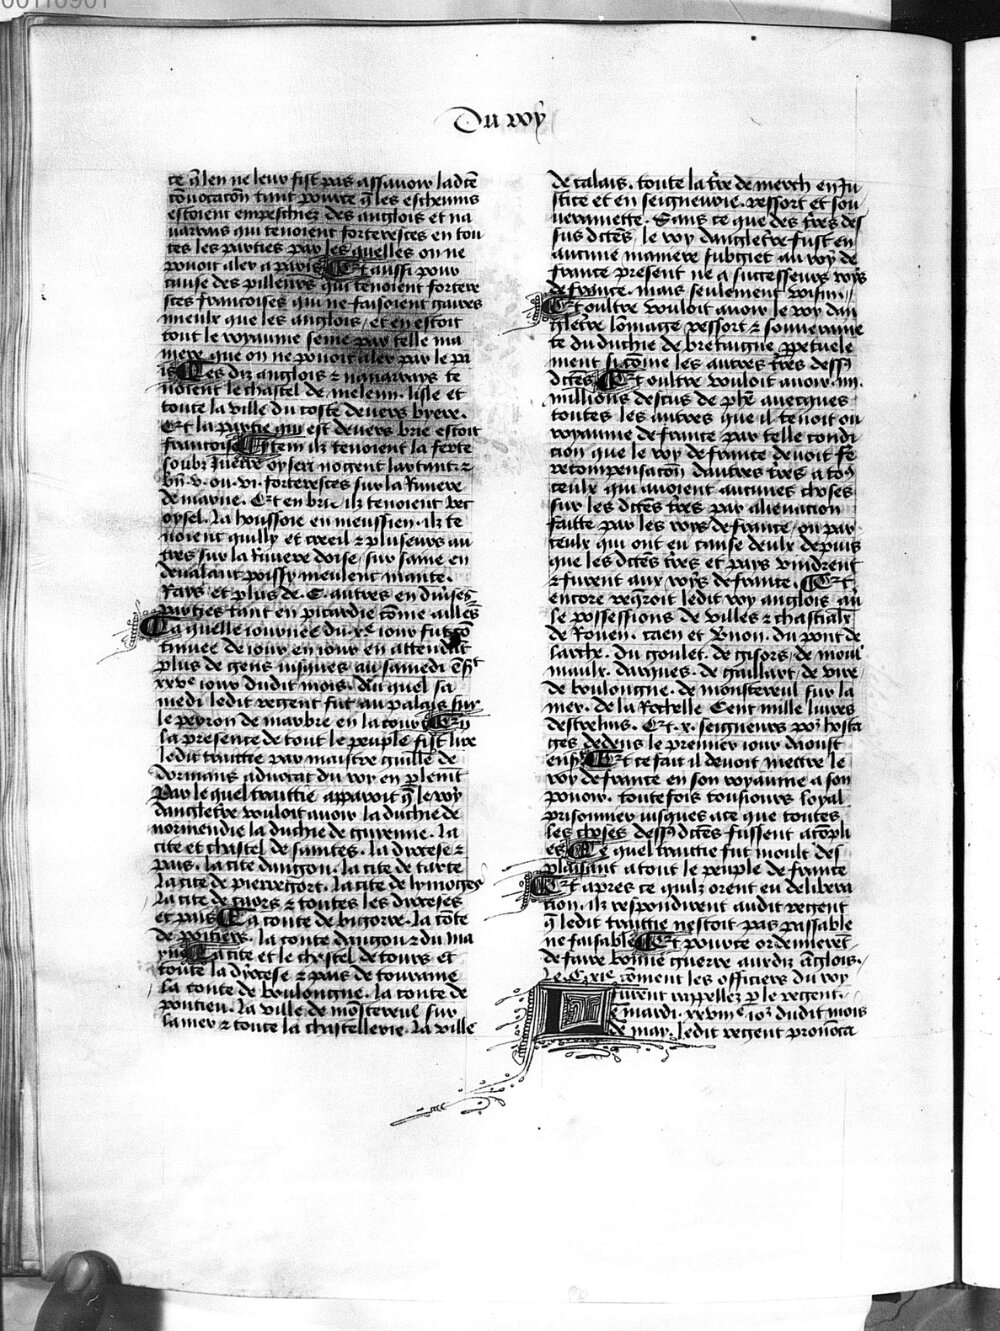 00110901
Du roy
ce q̃ len ne leur fist pas assauoir ladc̃e
cõuocac̃on tant pource q̃ les cheuins
estoient empeschiez des anglois et na
uarrois qui tenoient forteresces en tou
tes les parties par les quelles on ne
pouoit aler a paris Et aussi pour
cause des pilleurs qui tenoient fortere
sces francoises qui ne faisoient gaires
mieulx que les anglois / et en estoit
tout le royaume seme par telle ma
niere que on ne pouoit aler par le pa
is Les diz anglois ⁊ nauarrois te
noient le chastel de meleun . lisle et
toute la ville du coste deuers byere .
Et la partie qui est deuers brie estoit
francoise Item ilz tenoient la ferte
soubz Juerre oysery nogent lartaut ⁊
bñ . v . ou . vi . forteresces sur la Riuiere
de marne . Et en brie ilz tenoient
oysel . la houssoie en meussien . ilz te
noient quilly et creeil ⁊ plusieurs au
tres sur la Riuiere doise / sur saine en
deualant poissy meulent mante .
Rays et plus de . C . autres en diuẽses
parties tant en picardie cõme ailleʳs
La quelle iournee du . xe iour fut cõ
tinuee de iour en iour en attendãt
plus de gens iusques au samedi ẽst
xxve iour dudit mois . du quel sa
medi ledit regent fut au palais sur
le perron de marbre en la court En
la presence de tout le peuple fist lire
ledit traittie par maistre guille de
dormans aduocat du roy en p̃lemt̃
Par le quel traittie apparoit q̃ le roy
dangleterre vouloit auoir la duchie de
normendie la duchie de guienne . la
cite et chastel de saintes . la dyocese ⁊
pais . la cite dangon . la cite de tarte
la cite de pierregort . la cite de lymoges
la cite de caors ⁊ toutes les dyoceses
et pais La conte de bigorre . la cõte
de poitiers . la conte dangou ⁊ du ma
yne La cite et le chastel de tours et
toute la dyocese ⁊ pais de touraine
la conte de boulongne . la conte de
pontieu . la ville de mõstereul sur
la mer ⁊ toute la chastellerie . la ville
de calais . toute la tr̃e de merch en Ju
stice et en seigneurie . ressort et sou
ueraineste . Sans ce que des tr̃es des
sus dictes / le roy dangletr̃e fust en
aucune maniere subgiet au roy de
france present ne a successeurs roys
de france . mais seulement voisins
Et oultre vouloit auoir le roy dan
gletr̃e lomage ressort ⁊ souueraine
te du duchie de bretaigne p̱petuele
ment si cõme les autres tr̃es dess9
dictes Et oultre vouloit auoir . iiii .
millions descus de phẽ auecques
toutes les autres que il tenoit ou
royaume de france par telle condi
cion que le roy de france deuoit fe
recompensac̃on dautres tr̃es a to9
ceulx qui auoient aucunes choses
sur les dictes tr̃es par alienacion
faitte par les roys de france / ou par
ceulx qui ont eu cause deulx depuis
que les dictes tr̃es et pays vindrent
⁊ furent aux roys de france . Et
encore req̃roit ledit roy anglois au
se possessions de villes ⁊ chastialx
de Rouen . caen et vr̃non . du pont de
larche . du goulet . de gisors / de moul
niaulx . darques . de gaillart / de vire
de boulongne . de monstereul sur la
mer . de la Rochelle Cent mile liures
destrelins . Et . x . seigneurs po2 hosta
ges dedens le premier iour daoust
enss̃ Et ce fait il deuoit mettre le
roy de france en son royaume a son
pouoir . toutefois tousiours loyal
prisonnier iusques ace que toutes
les choses dess9dictes fussent acõpli
es Le quel traittie fut moult des
plaisant a tout le peuple de france
Et apres ce quilz orent eu delibera
tion . ilz respondirent audit regent
q̃ ledit traittie nestoit pas passable
ne faisable Et pource ordenneret̃
de faire bonne guerre ausdiz ãglois .
Le C.xie . cõment les officiers du roy
furent rappellez p̱ le regent .
Le mardi . xxviiie io2 dudit mois
de may . ledit regent prononca